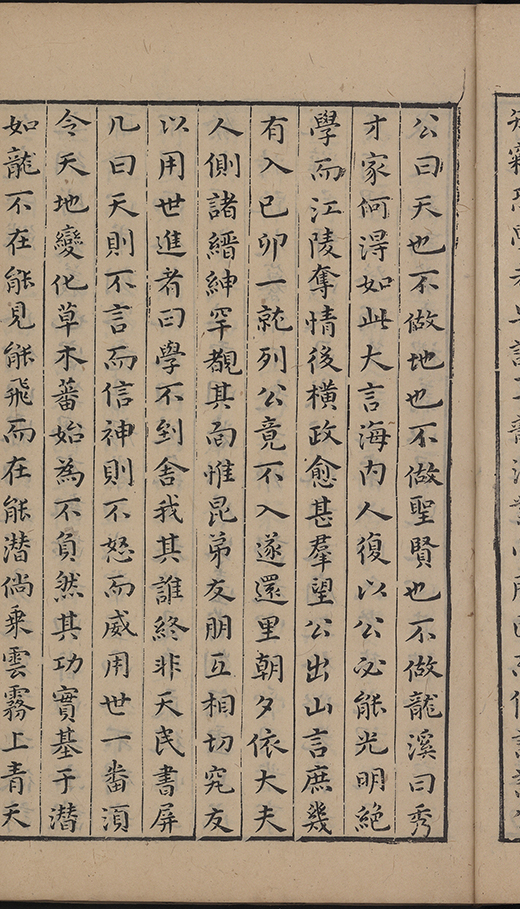 公曰天也不做地也不做聖賢也不做龍溪曰秀
才家何得如此大言海内人復以公必能光明絶
學而江陵奪情後橫政愈甚羣望公出山言庶幾
有入已卯一就列公竟不入遂還里朝夕依大夫
人側諸縉紳罕覯其面惟昆弟友朋互相切究友
以用世進者曰學不到舍我其誰終非天民書屏
几曰天則不言而信神則不怒而威用世一畨須
令天地變化草木蕃始為不負然其功實基于潜
如龍不在能見能飛而在能潜倘乗雲霧上青天